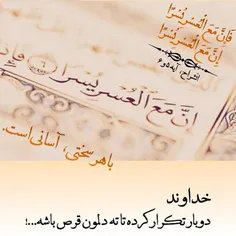 فَاِنَّ مَعَ الْعُسْرِ يُسْرًا
اِنَّ مَعَ الْعُسْرِ يُسْرًا
انشراح، آیه ۵و۶
اِنَّ مَعَ الْعُسْرِ يُسْرًا
با هر سختی، آسانی است.
خداوند
دوبار تکرار کرده تا ته دلمون قرص باشه...!